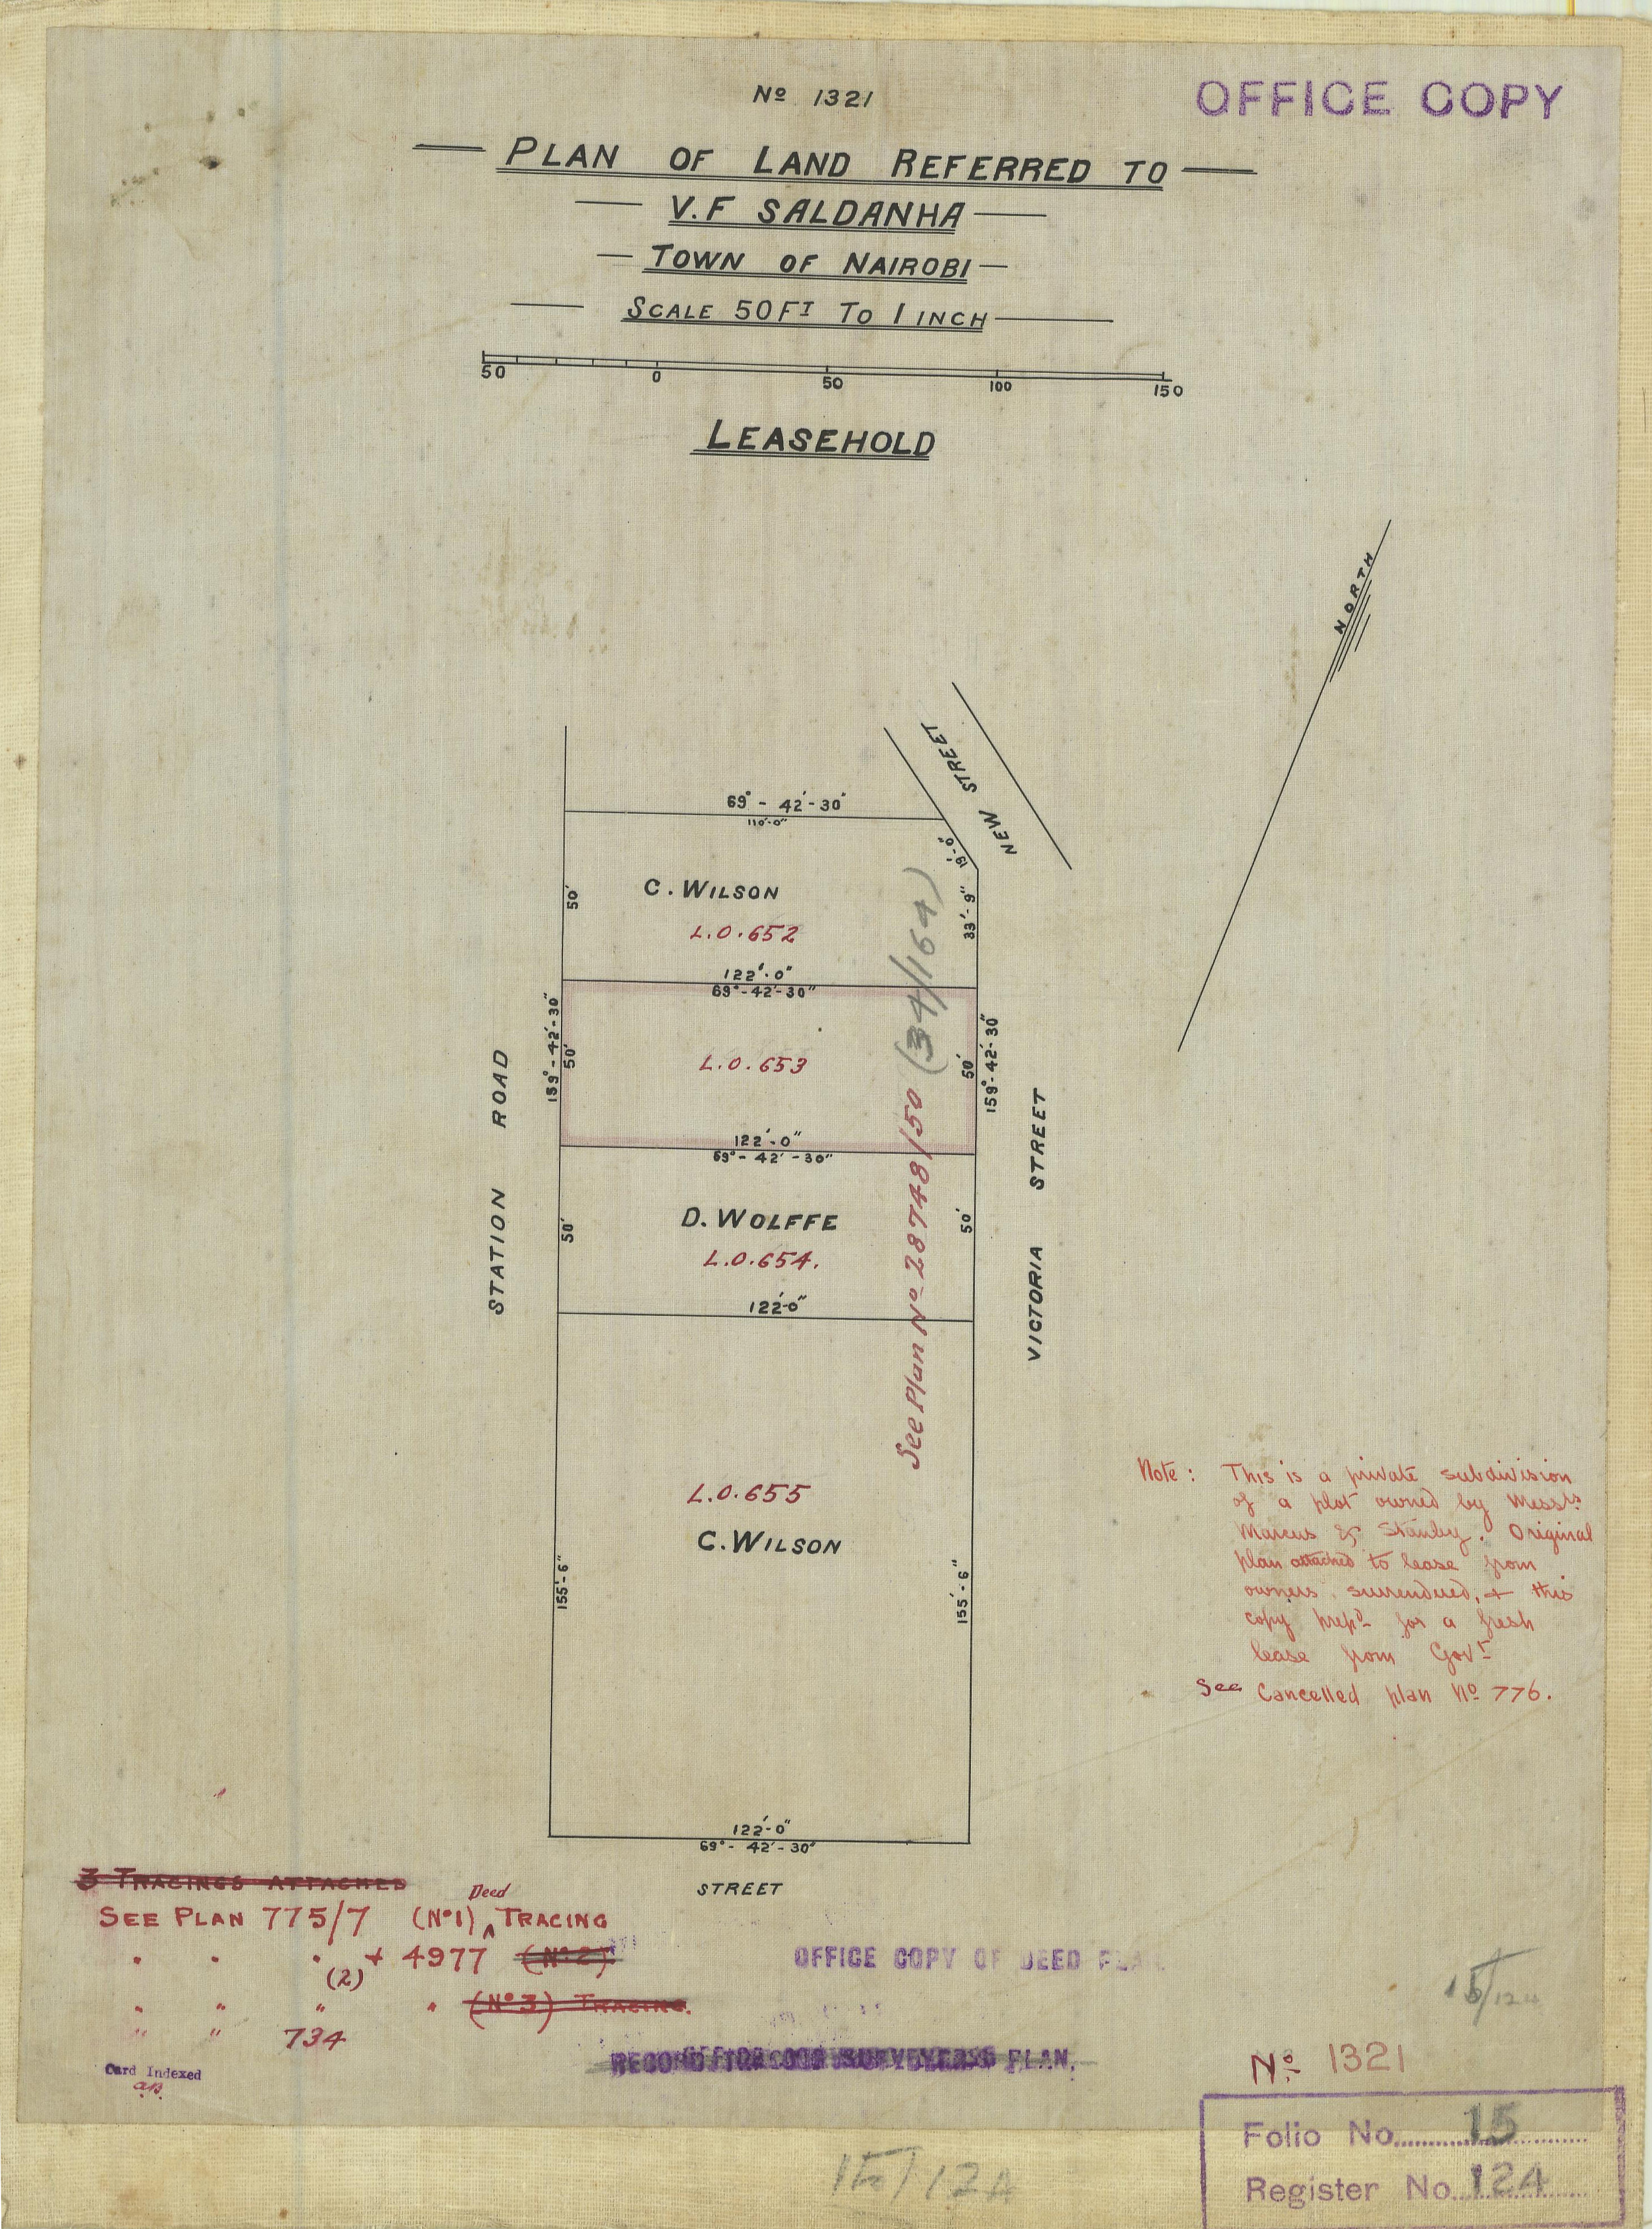 Nº 1321
OFFICE COPY
PLAN OF LAND REFERRED TO
V.F SALDANHA
TOWN OF NAIROBI
SCALE 50 FT TO 1 INCH
50 0 50 100 150
LEASEHOLD
NORTH
NEW STREET
69° - 42' - 30"
110'-0"
19'-0"
50'
C. WILSON
33'-9"
L.O.652
122'-0"
69°-42'-30"
159°-42'-30"
50'
L.O.653
50'
159°-42'-30"
122'-0"
69° - 42' - 30"
STATION ROAD
VICTORIA STREET
50'
D. WOLFFE
50'
L.O.654.
122'-0"
See Plan Nº 28748/50 (34/164)
L.O.655
C. WILSON
155'-6"
155'-6"
122'-0"
69° - 42' - 30"
STREET
Note: This is a private subdivision
of a plot owned by Messrs
Marcus & Stanley. Original
plan attached to lease from
owners surrendered, + this
copy prepd for a fresh
lease from Govt
See Cancelled plan Nº 776.
3 TRACINGS ATTACHED
Deed
SEE PLAN 775/7 (Nº1) ^ TRACING
" " " + 4977 (Nº2)
(2)
" " " " (Nº3) TRACING.
" " 734
Card Indexed
OFFICE COPY OF DEED PLAN
PLAN.
15/124
Nº 1321
Folio No. 15
Register No. 124
15/124